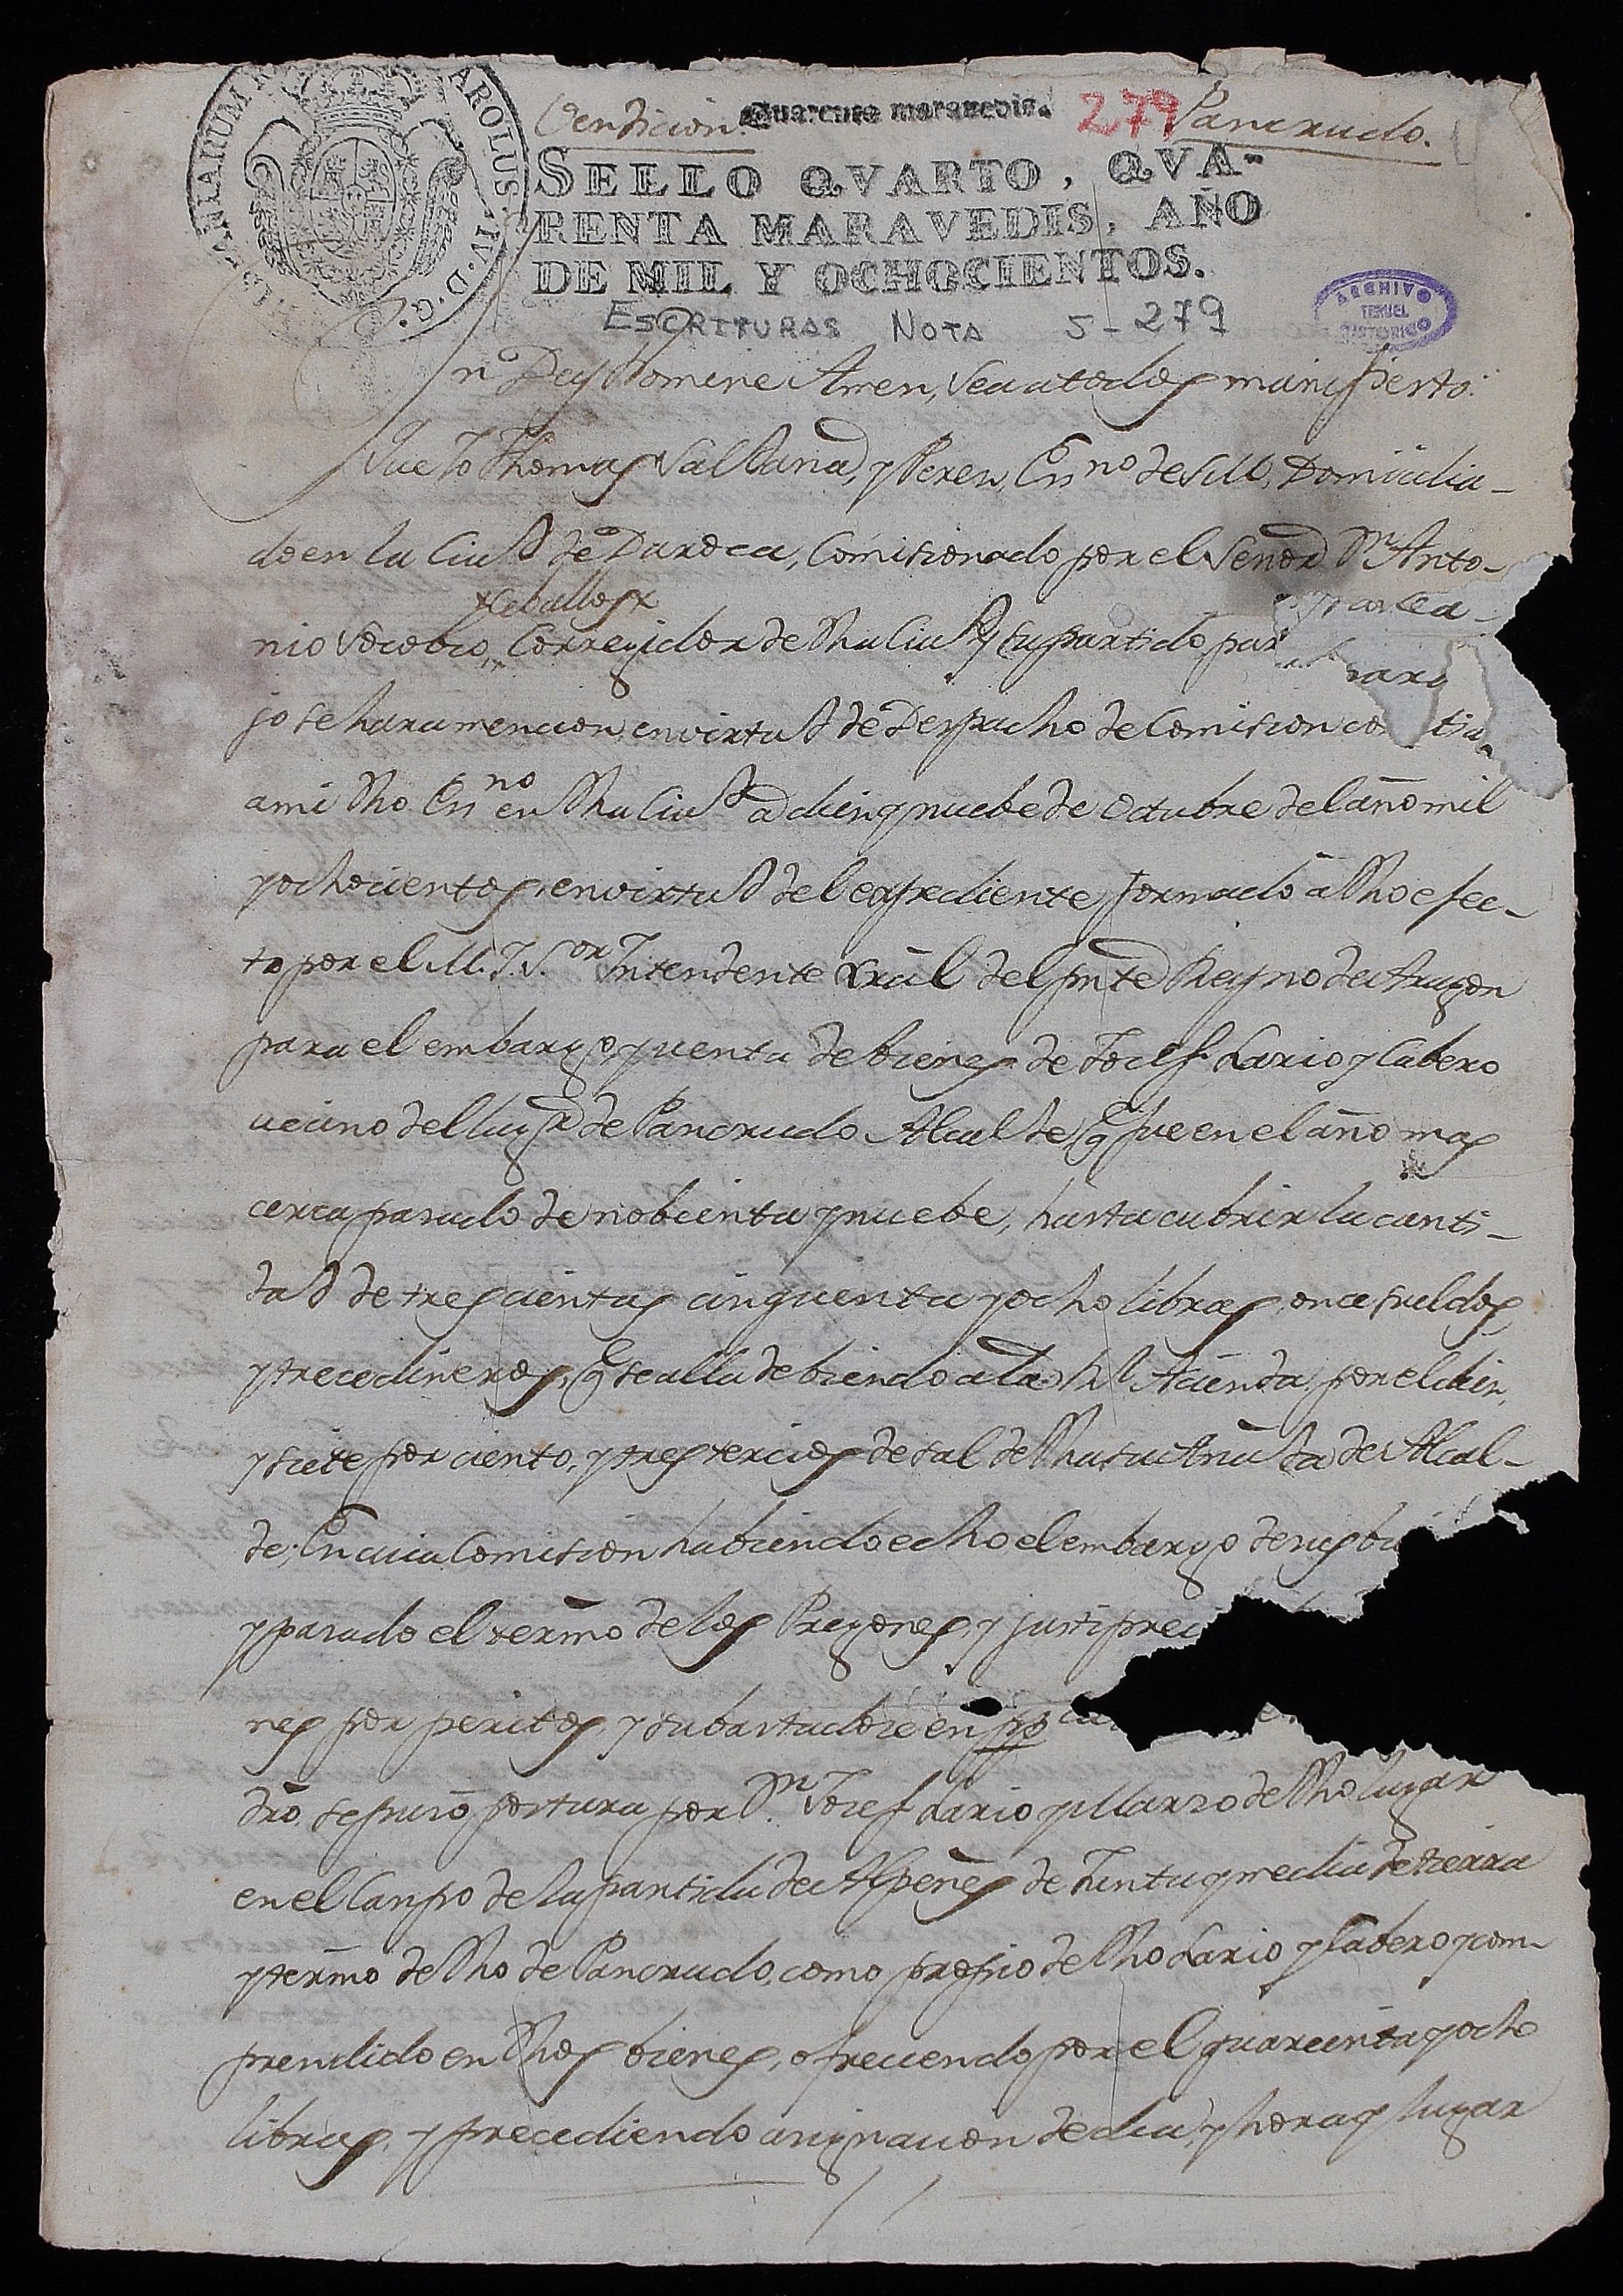 HISPANIARUM R CAROLUS · IV · D · G ·
Vendicion Quarenta maravedis. 279 Pancrudo.
SELLO QVARTO, QVA-
RENTA MARAVEDIS, AÑO
DE MIL Y OCHOCIENTOS.
ESCRITURAS NOTA 5-279
ARCHIVO
TERUEL
HISTORICO
In Dey Nomine Amen, Sea a todos manifiesto:
Que Yo Thomas Vallana, y Perez, Essno de S.M. Domicilia-
do en la Ciud de Daroca, Comisionado por el Señor Dn Anto-
xCeballosx
nio Corregidor de dha Ciud y su partido, par
jo se hara mencion, en virtud de Despacho de Comision
a mi dho Essno en dha Ciud a diez y nuebe de Octubre del año mil
y ochocientos, en virtud del expediente formado á dho efec-
to por el M. I. Sor Intendente Gral del pnte Reyno de Aragon
para el embargo, y venta de bienes de Josef Lario y Cabero
vecino del lugr de Pancrudo Alcalde qe fue en el año mas
cerca pasado de nobenta y nuebe, hasta cubrir la canti-
dad de trescientas cinquenta y ocho libras, once sueldos
y trece dineros, qe se alla debiendo a la Rl Acienda, por el diez,
y siete por ciento, y tres tercios de sal de dha su Anuda de Alcal-
de; En cuia Comision habiendo echo el embargo de sus
y pasado el termo de los Pregones, y justipreci
nes por peritos, y subastadose en
dro, se puso postura por Dn Josef Lario y Marzo de dho lugar
en el Canpo de la partida de Alpeñes de Junta y media de tierra
y termo de dho de Pancrudo, como propio de dho Lario y Cabero y com-
prendido en dhos bienes, ofreciendo por el quarenta y ocho
libras, y precediendo asignacion de dia, y hora y lugar